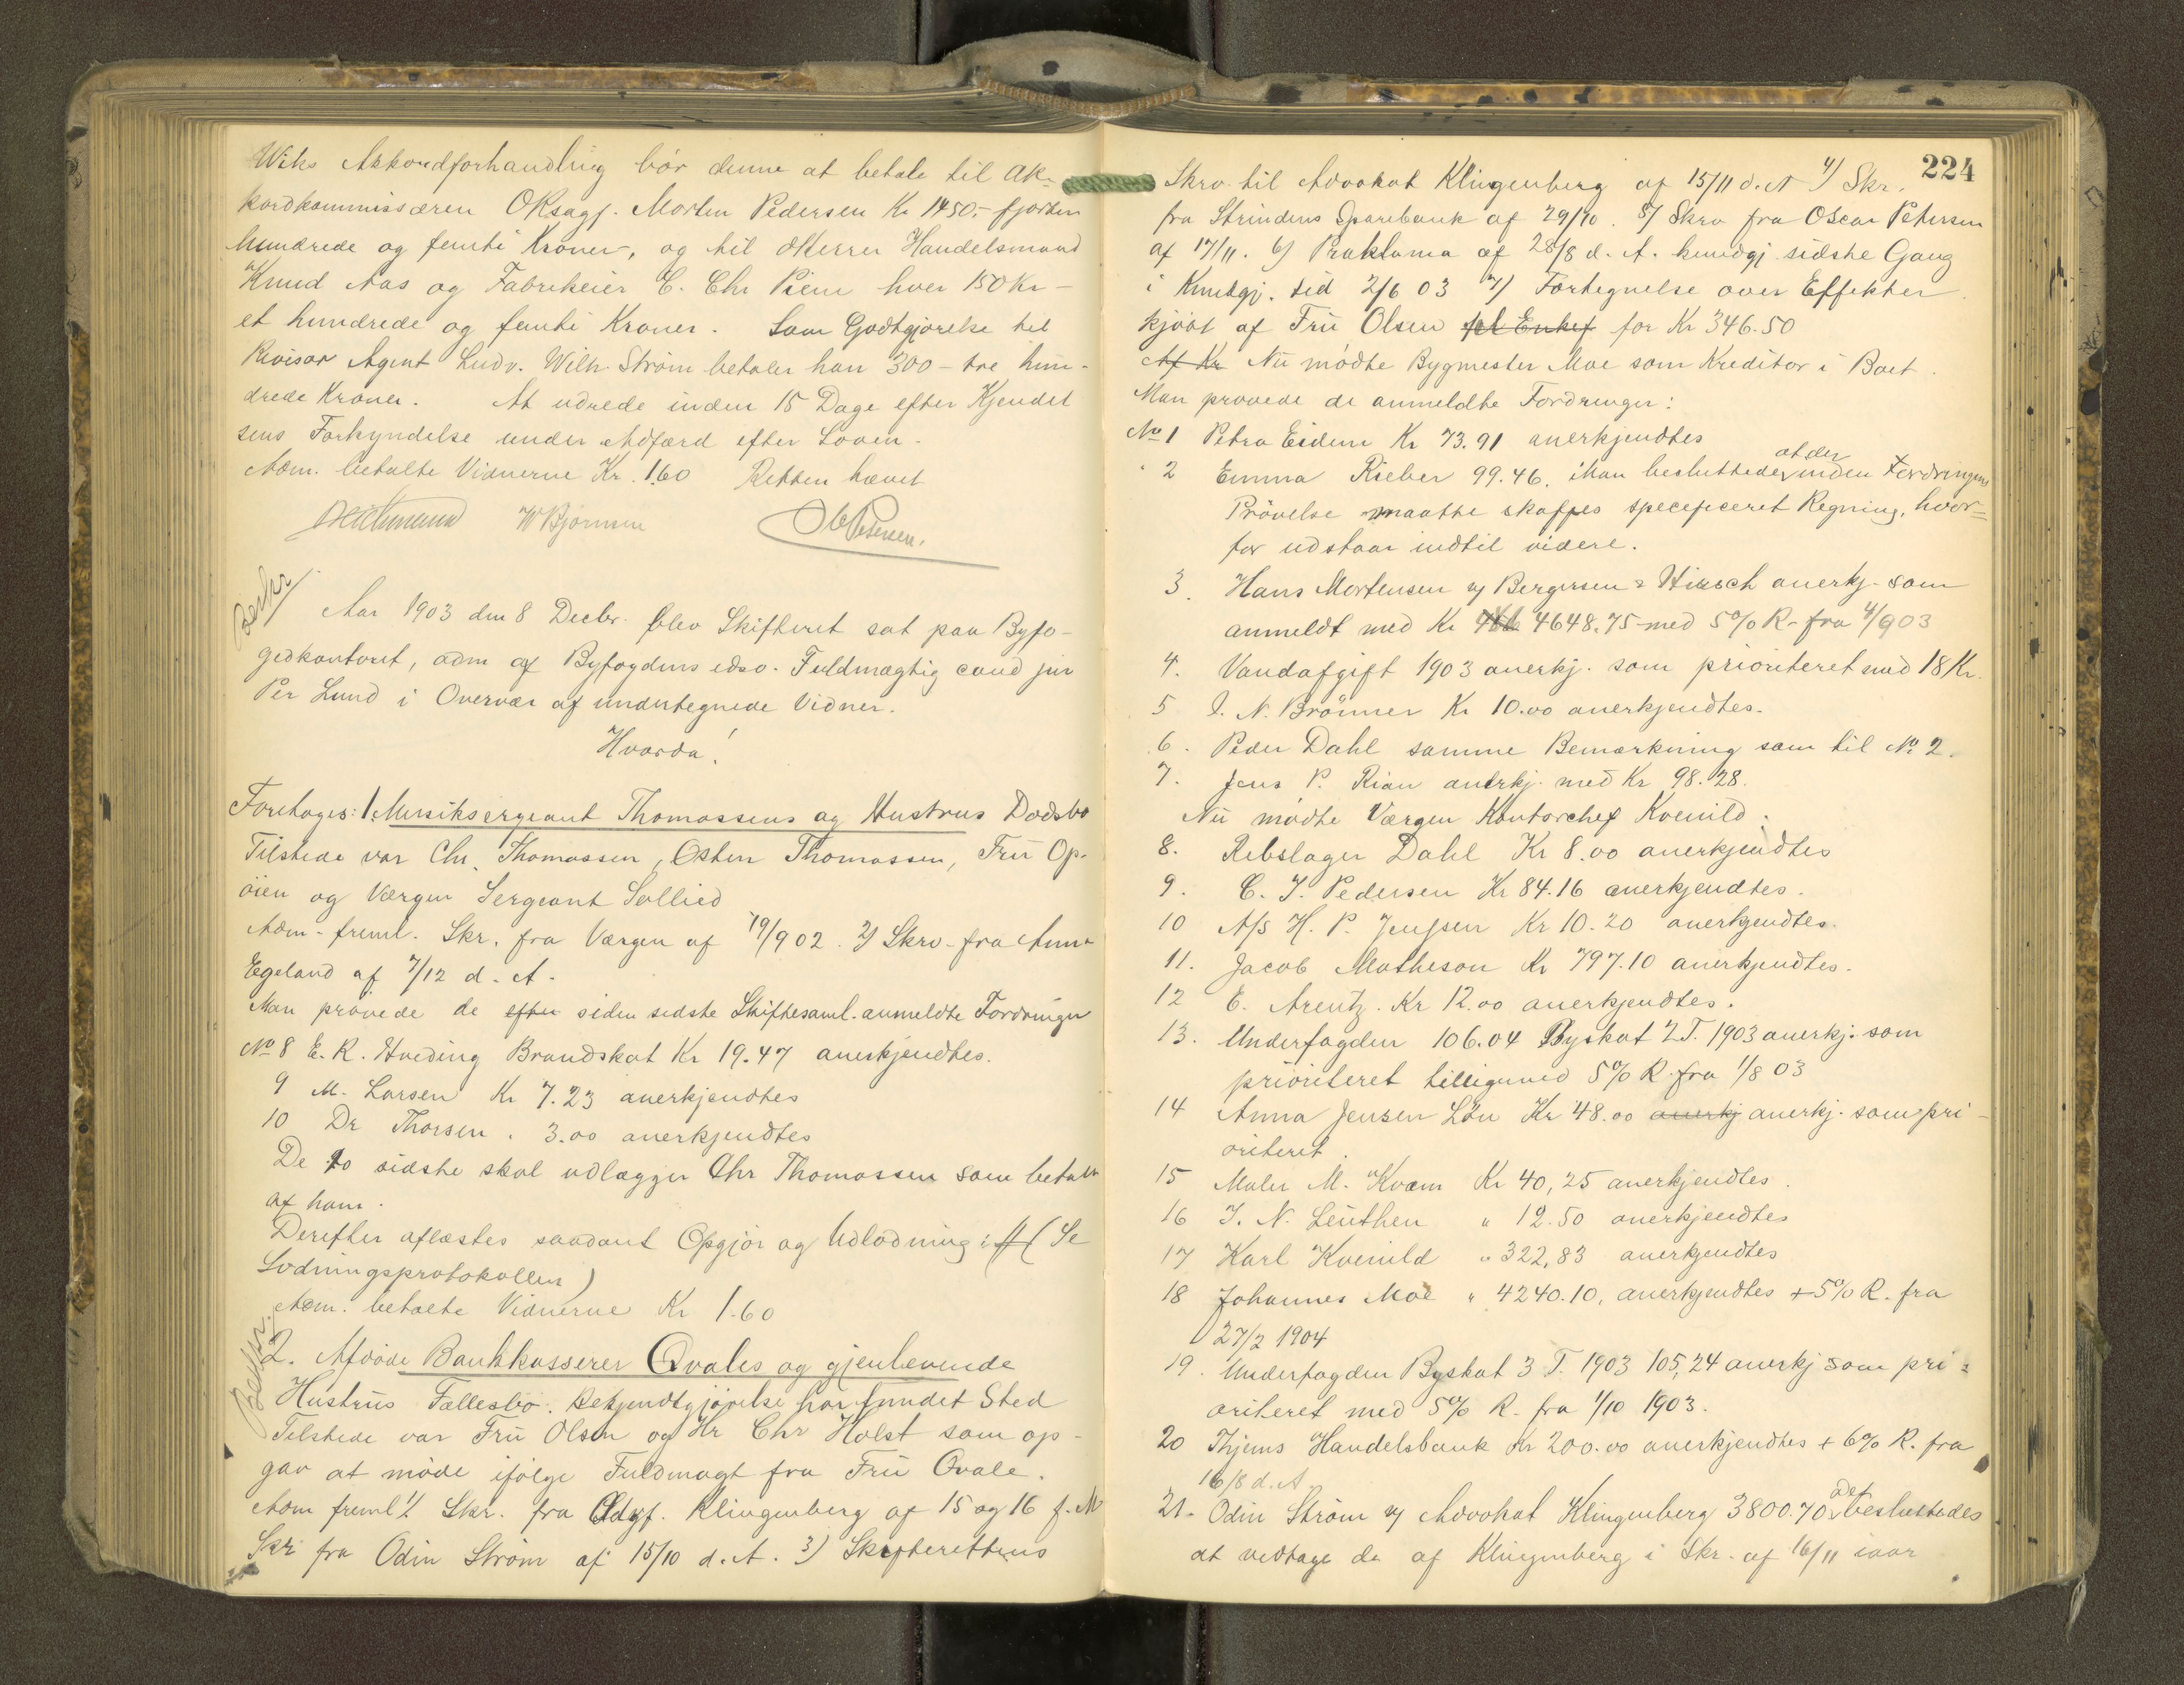 Wiks Akkordforhandling bør denne at betale til Ak-
kordkommissæren ORsagf. Morten Pedersen Kr 1450,- fjorten
hundrede og femti Kroner, og til Herrer Handelsmand
Knud Aas og Fabrikeier C. Chr Piene hver 150 Kr -
et hundrede og femti Kroner. Som Godtgjørelse til
Revisor Agent Ludv. Wilh. Strøm betaler han 300 - tre hun-
drede Kroner. At udrede inden 15 Dage efter Kjendel
sens Forkyndelse under Adfærd efter Loven.
Adm. betalte Vidnerne Kr. 1.60 Retten hævet
W Bjørnsen O Petersen.
Beskr/
Aar 1903 den 8 Decbr. blev Skifteret sat paa Byfo-
gedkontoret, adm af Byfogdens edsv. Fuldmægtig cand jur
Per Lund i Overvær af undertegnede Vidner.
Hvorda!
Foretoges: 1. Musiksergeant Thomassens og Hustrus Dødsbo
Tilstede var Chr. Thomassen, Osten Thomassen, Fru Op-
øien og Værgen Sergeant Sollied
Adm- freml. Skr. fra Værgen af 19/9 02. 2) Skrv- fra Anna
Egeland af 7/12 d. A.
Man prøvede de efter siden sidste Skiftesaml. anmeldte Fordringer
No 8 E. R. Hveding Brandskat Kr 19.47 anerkjendtes.
9 M. Larsen Kr 7.23 anerkjendtes
10 Dr Thorsen . 3.00 anerkjendtes
De to sidste skal udlægges Chr Thomassen som betalt
af ham.
Derefter aflæstes saadant Opgjør og Udlodning: (Se
Lodningsprotokollen)
Adm. betalte Vidnerne Kr 1.60
Beskr.
2. Afdøde Bankkasserer Qvales og gjenlevende
Hustrus Fællesbo. Bekjendtgjørelse har fundet Sted
Tilstede var Fru Olsen og Hr Chr Holst som op-
gav at møde ifølge Fuldmagt fra Fru Qvale.
Adm freml 1/ Skr. fra Klingenberg af 15 og 16 f. M
Skr fra Odin Strøm af 15/10 d. A. 3) Skifterettens
224
Skrv. til Advokat Klingenberg af 15/11 d. A 4/ Skr.
fra Strindens Sparebank af 29/10. 5/ Skrv fra Oscar Petersen
af 17/11. 6) Proklama af 28/8 d. A. kundgj sidste Gang
i Kundgj. tid 2/6 03 7/ Fortegnelse over Effekter
kjøbt af Fru Olsen for Kr 346.50
Af Kr Nu mødte Bygmester Moe som Kreditor i Boet.
Man prøvede de anmeldte Fordringer:
No 1 Petra Eidem Kr 73.91 anerkjendtes
2 Emma Rieber 99.46. Man besluttede at der inden Fordringens
Prøvelse maatte skaffes specificeret Regning, hvor-
for udstaar indtil videre.
3. Hans Mortensen v/ Bergersen & Hirsch anerkj. som
anmeldt med Kr 4648.75 med 5% R- fra 4/9 03
4. Vandafgift 1903 anerkj. som prioriteret med 18 Kr.
5 I. N. Brønner Kr 10.00 anerkjendtes.
6. Peder Dahl samme Bemærkning som til No 2.
7. Jens P. Rian anerkj. med Kr 98.28.
Nu mødte Værgen Kontorchef Kvenild.
8. Rebslager Dahl Kr 8.00 anerkjendtes
9. C. I. Pedersen Kr 84.16 anerkjendtes.
10 A/S H. P. Jenssen Kr 10.20 anerkjendtes.
11. Jacob Matheson Kr 797.10 anerkjendtes.
12 E. Arentz. Kr 12.00 anerkjendtes.
13. Underfogden 106.04 Byskat 2 T. 1903 anerkj. som
prioriteret tilligemed 5% R. fra 1/8 03
14 Anna Jensen Løn Kr 48.00 anerkj anerkj. som pri-
oriteret.
15 Maler M. Kvam Kr 40,25 anerkjendtes.
16 I. N. Leuthen " 12.50 anerkjendtes
17 Karl Kvenild " 322,83 anerkjendtes
18 Johannes Moe " 4240.10, anerkjendtes + 5% R. fra
27/2 1904
19. Underfogden Byskat 3 T. 1903 105,24 anerkj som pri-
oriteret med 5% R. fra 1/10 1903.
20 Thjems Handelsbank Kr 200.00 anerkjendtes + 6% R. fra
16/8 d. A.
21. Odin Strøm v/ Advokat Klingenberg 3800.70. Det besluttedes
at vedtage de af Klingenberg i Skr. af 16/11 iaar